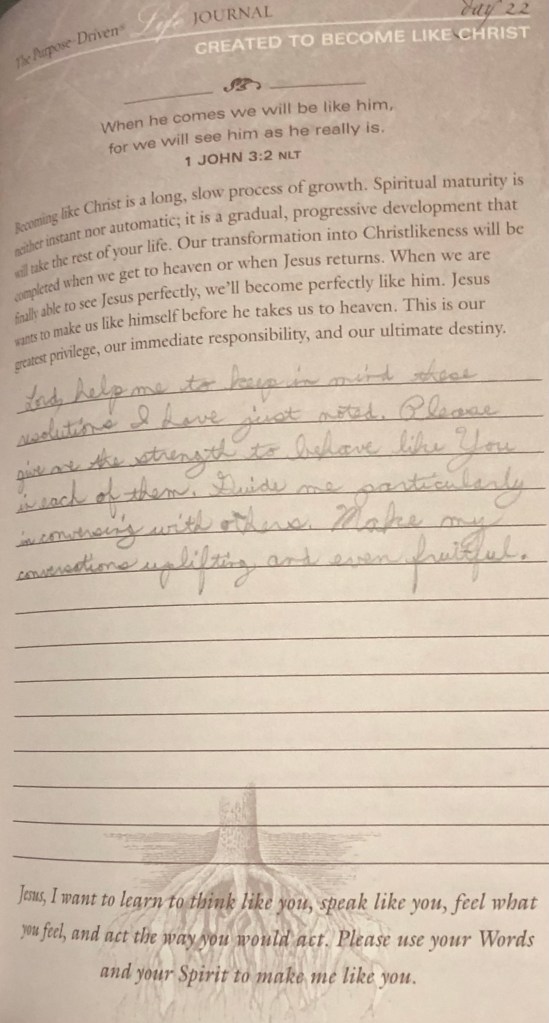 day 22
The Purpose-Driven® Life JOURNAL
CREATED TO BECOME LIKE CHRIST
When he comes we will be like him,
for we will see him as he really is.
1 JOHN 3:2 NLT
Becoming like Christ is a long, slow process of growth. Spiritual maturity is
neither instant nor automatic; it is a gradual, progressive development that
will take the rest of your life. Our transformation into Christlikeness will be
completed when we get to heaven or when Jesus returns. When we are
finally able to see Jesus perfectly, we'll become perfectly like him. Jesus
wants to make us like himself before he takes us to heaven. This is our
greatest privilege, our immediate responsibility, and our ultimate destiny.
Lord, help me to keep in mind these
resolutions I have just noted. Please
give me the strength to behave like You
in each of them. Guide me particularly
in conversing with others. Make my
conversations uplifting and even fruitful.
Jesus, I want to learn to think like you, speak like you, feel what
you feel, and act the way you would act. Please use your Words
and your Spirit to make me like you.